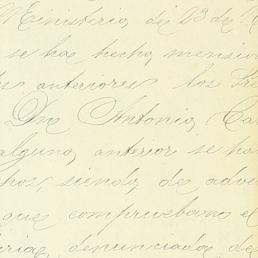 Ministerio, de 23 de
se has hecho, mension
anteriores los Fre
Dn Antonio, Car
alguno, anterior se ha
chos, siendo, de adver
que comprueban el
rias, denunciadas de